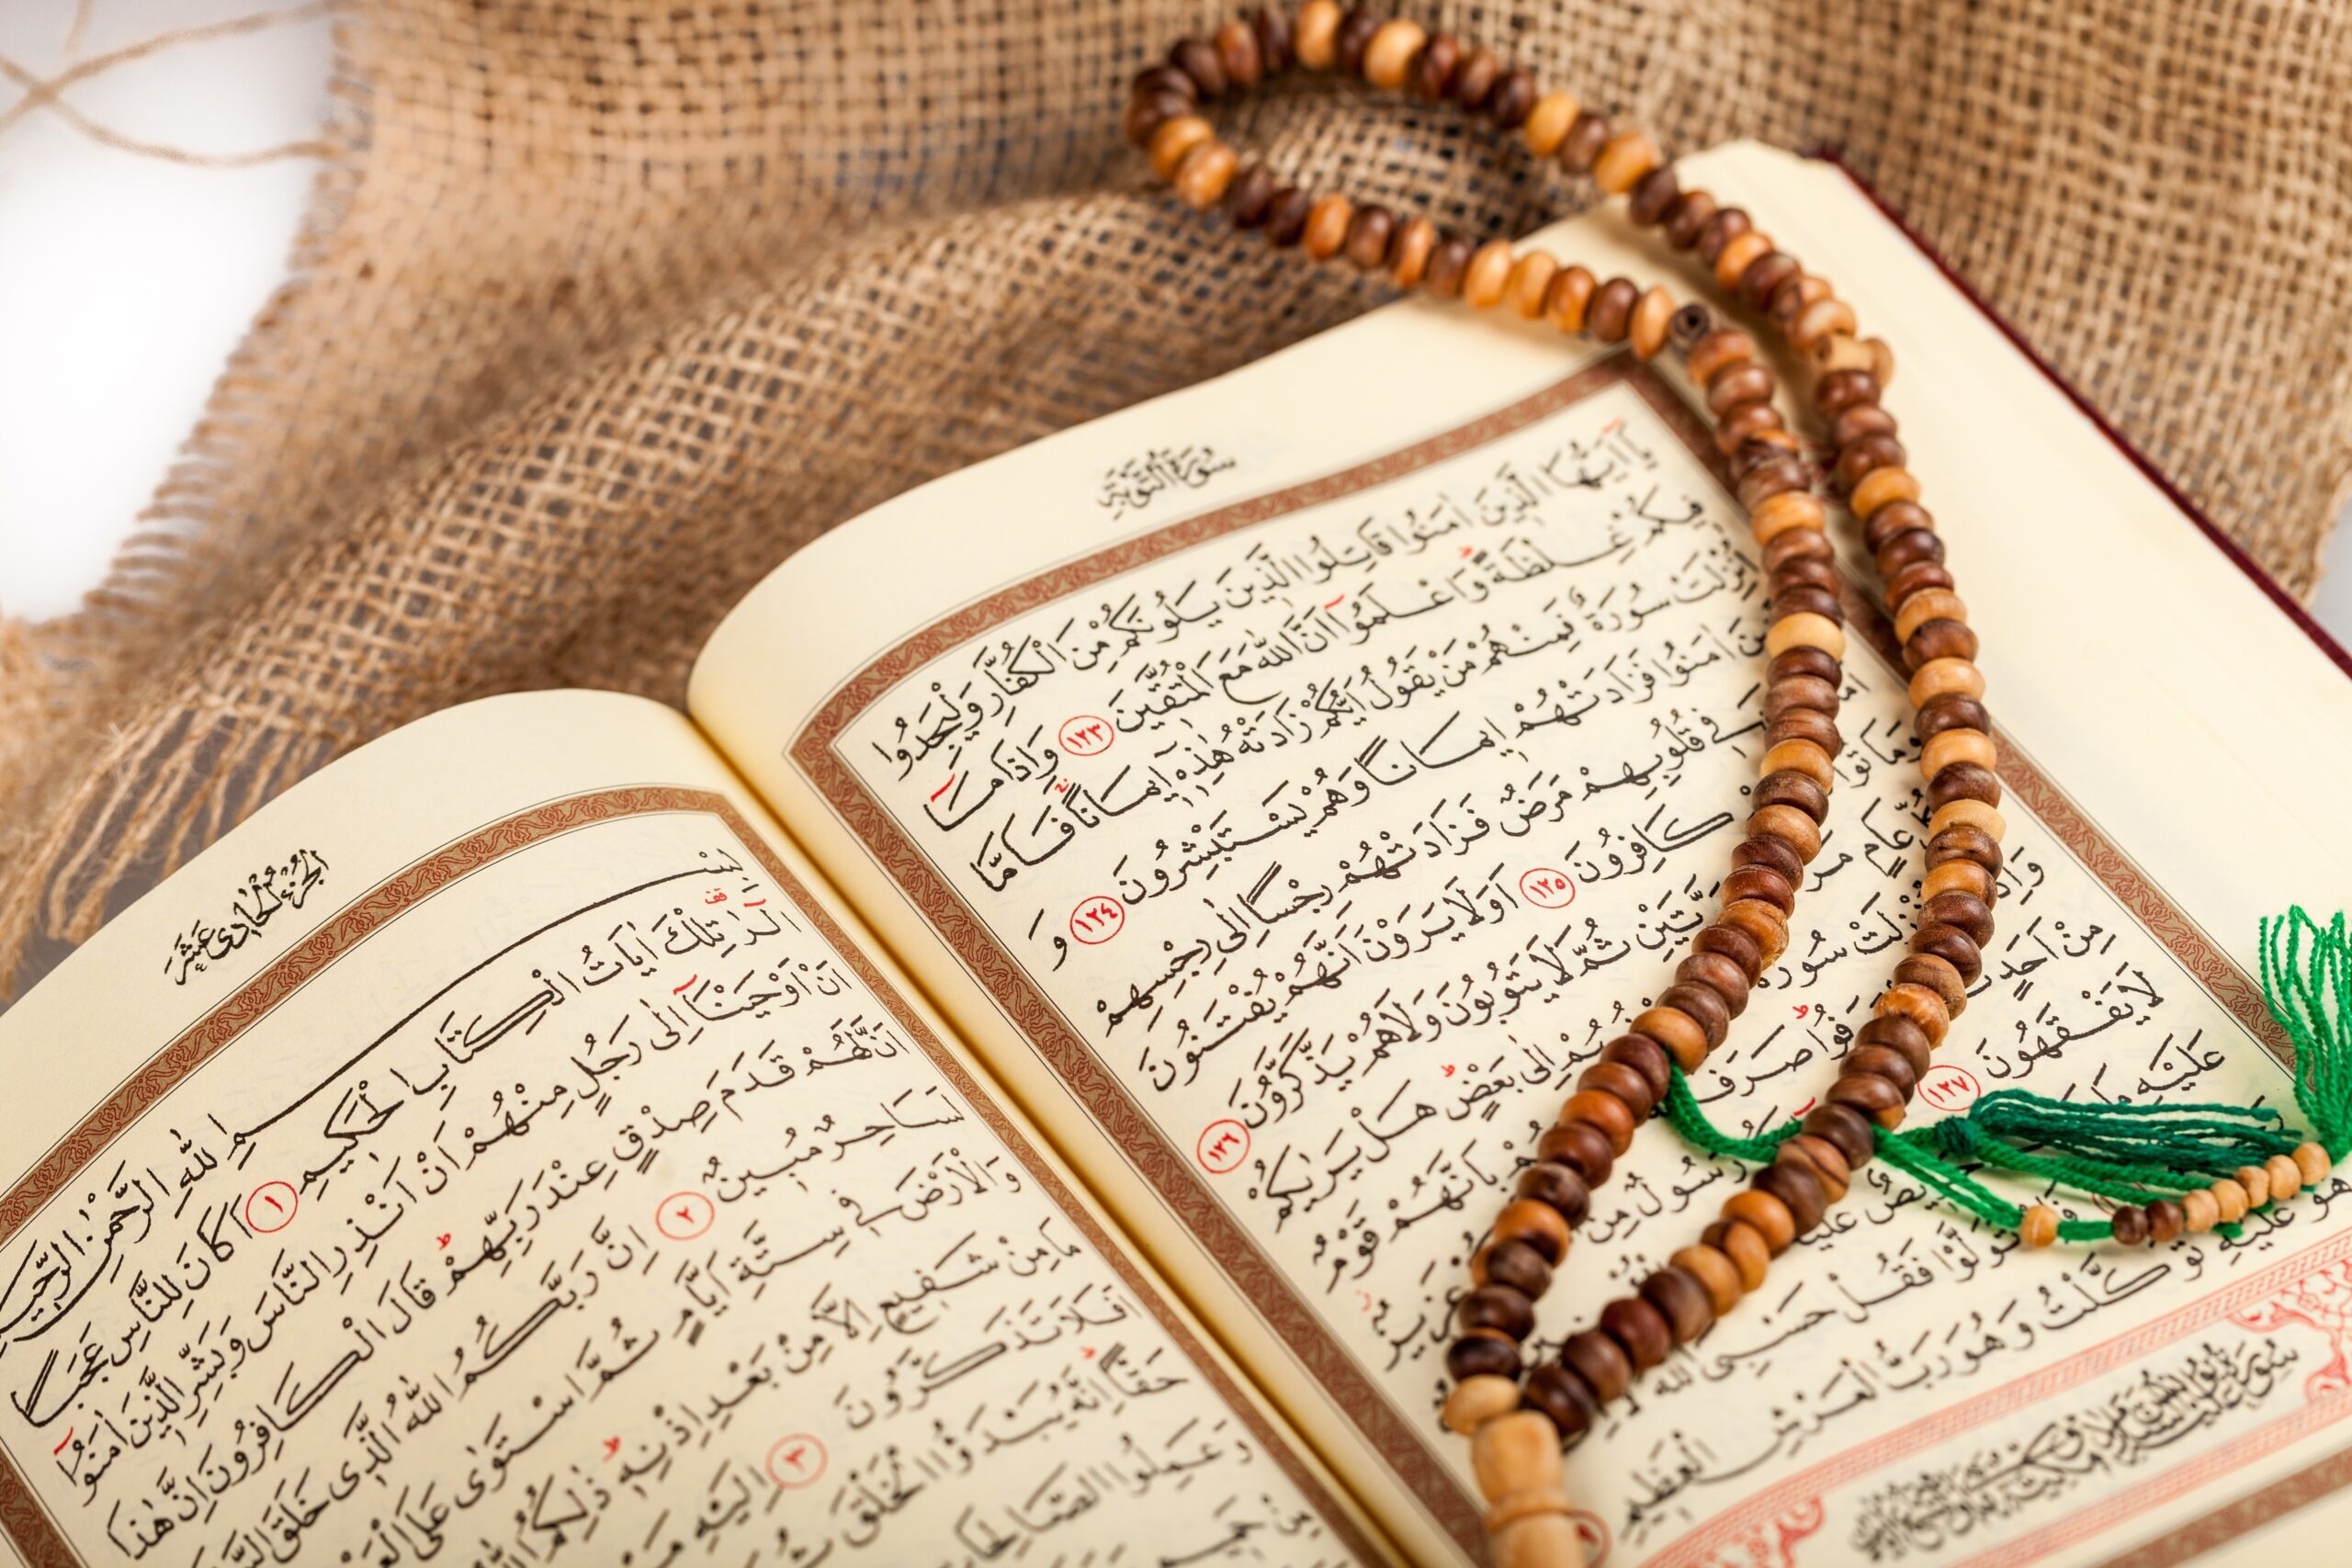 سورة التوبة
يَا أَيُّهَا الَّذِينَ اٰمَنُوا قَاتِلُوا الَّذِينَ يَلُونَكُمْ مِنَ الْكُفَّارِ وَلْيَجِدُوا
فِيكُمْ غِلْظَةً وَاعْلَمُوا اَنَّ اللّٰهَ مَعَ الْمُتَّقِينَ ١٢٣ وَاِذَا مَا
اُنْزِلَتْ سُورَةٌ فَمِنْهُمْ مَنْ يَقُولُ اَيُّكُمْ زَادَتْهُ هٰذِهِ اِيمَانًا فَاَمَّا
اٰمَنُوا فَزَادَتْهُمْ اِيمَانًا وَهُمْ يَسْتَبْشِرُونَ ١٢٤ وَ
فِي قُلُوبِهِمْ مَرَضٌ فَزَادَتْهُمْ رِجْسًا اِلٰى رِجْسِهِمْ
وَمَاتُوا كَافِرُونَ ١٢٥ اَوَلَا يَرَوْنَ اَنَّهُمْ يُفْتَنُونَ
عَامٍ ثُمَّ لَا يَتُوبُونَ وَلَا هُمْ يَذَّكَّرُونَ ١٢٦
سُورَةٌ بَعْضُهُمْ اِلٰى بَعْضٍ هَلْ يَرٰيكُمْ
مِنْ اَحَدٍ صَرَفَ بِاَنَّهُمْ قَوْمٌ
لَا يَفْقَهُونَ ١٢٧ رَسُولٌ مِنْ عَزِيزٌ
عَلَيْهِ مَا
تَوَلَّوْا فَقُلْ حَسْبِيَ اللّٰهُ
هُوَ عَلَيْهِ تَوَكَّلْتُ وَهُوَ رَبُّ الْعَرْشِ الْعَظِيمِ
الجزء الحادي عشر
بِسْمِ اللّٰهِ الرَّحْمٰنِ الرَّحِيمِ
الٓرٰ تِلْكَ اٰيَاتُ الْكِتَابِ الْحَكِيمِ ١ اَكَانَ لِلنَّاسِ عَجَبًا
اَنْ اَوْحَيْنَا اِلٰى رَجُلٍ مِنْهُمْ اَنْ اَنْذِرِ النَّاسَ وَبَشِّرِ الَّذِينَ اٰمَنُوا
اَنَّ لَهُمْ قَدَمَ صِدْقٍ عِنْدَ رَبِّهِمْ قَالَ الْكَافِرُونَ اِنَّ هٰذَا
لَسَاحِرٌ مُبِينٌ ٢ اِنَّ رَبَّكُمُ اللّٰهُ الَّذِي خَلَقَ
وَالْاَرْضَ فِي سِتَّةِ اَيَّامٍ ثُمَّ اسْتَوٰى عَلَى
مَا مِنْ شَفِيعٍ اِلَّا مِنْ بَعْدِ اِذْنِهِ ذٰلِكُمُ
اَفَلَا تَذَكَّرُونَ ٣ اِلَيْهِ
حَقًّا اِنَّهُ يَبْدَؤُا الْخَلْقَ
وَعَمِلُوا الصَّالِحَاتِ